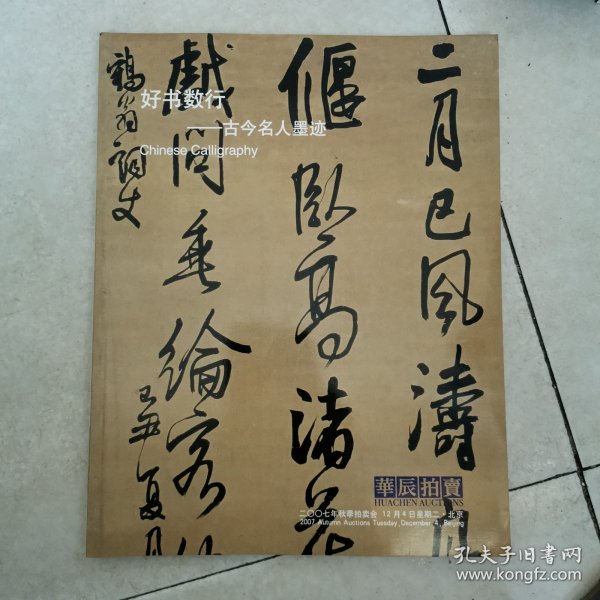 二月已风濤
偃卧高渚花
戲問垂綸客
鶴翁詞丈
夏月
好书数行
——古今名人墨迹
Chinese Calligraphy
華辰拍賣
HUACHEN AUCTIONS
二〇〇七年秋季拍卖会 12月4日星期二·北京
2007 Autumn Auctions Tuesday, December 4, Beijing
孔夫子旧书网
www.kongfz.com